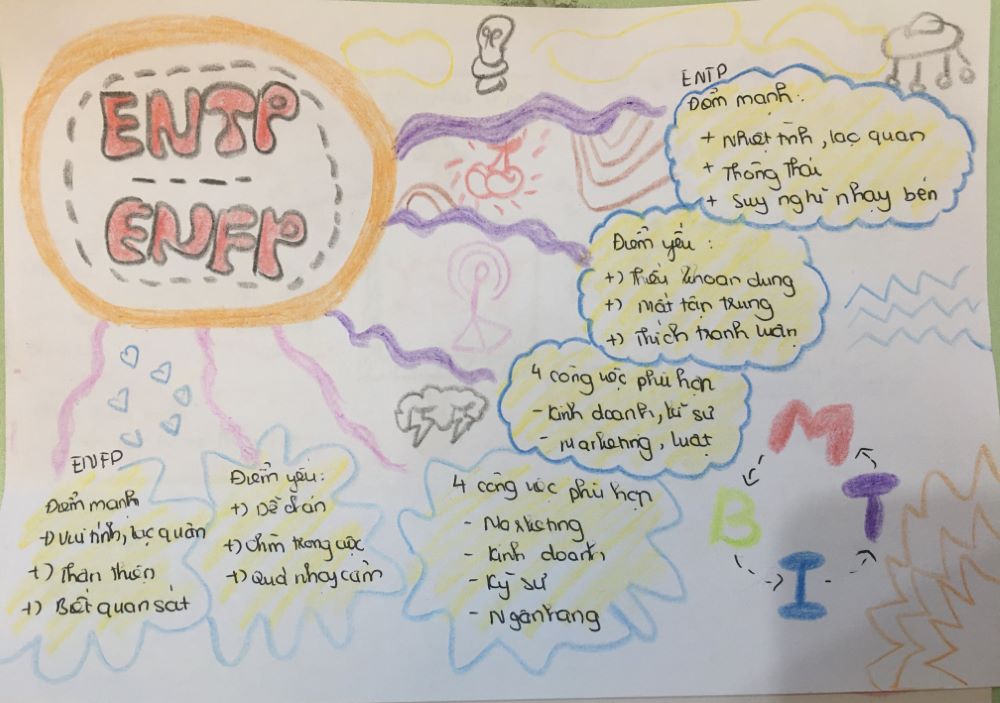 ENTP
ENFP
ENTP
Điểm mạnh:
+ Nhiệt tình, lạc quan
+ Thông thái
+ Suy nghĩ nhạy bén
Điểm yếu :
+) Thiếu khoan dung
+) Mất tập trung
+) Thích tranh luận
4 công việc phù hợp
- Kinh doanh, kĩ sư
- Marketing, luật
ENFP
Điểm mạnh
+) Vui tính, lạc quan
+) Thân thiện
+) Biết quan sát
Điểm yếu:
+) Dễ chán
+) Chìm trong cuộc
+) Quá nhạy cảm
4 công việc phù hợp
- Marketing
- Kinh doanh
- Kỹ sư
- Ngân hàng
M
B T
I